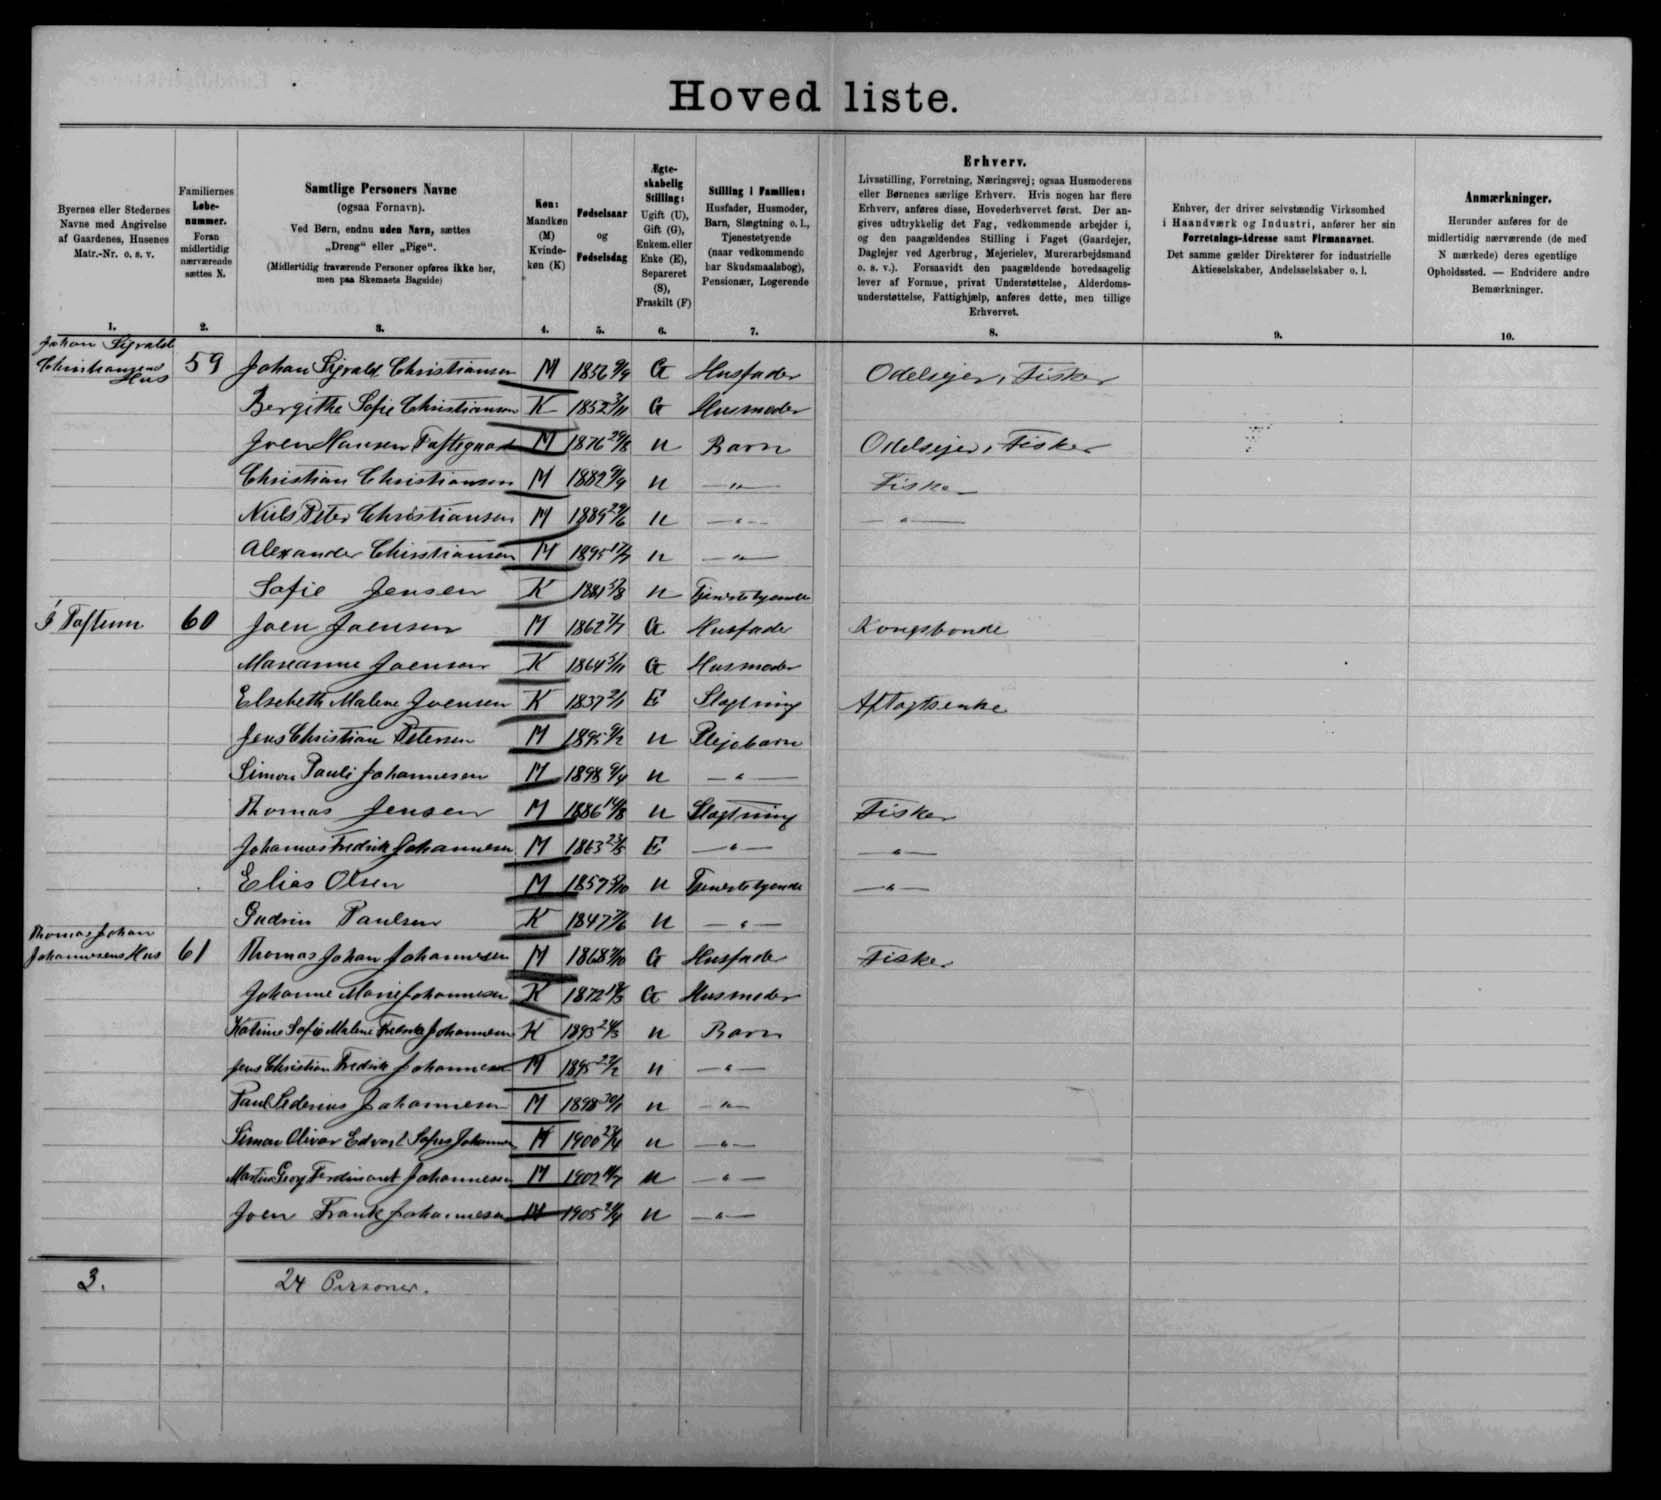 Hoved liste.
Byernes eller Stedernes Navne med Angivelse af Gaardenes, Husenes Matr.-Nr. o. s. v.
Familiernes Løbe-nummer. Foran midlertidig nærværende sættes N.
Samtlige Personers Navne
(ogsaa Fornavn).
Ved Børn, endnu uden Navn, sættes
„Dreng“ eller „Pige“.
(Midlertidig fraværende Personer opføres ikke her,
men paa Skemaets Bagside)
Køn: Mandkøn (M) Kvinde-køn (K)
Fødselsaar og Fødselsdag
Ægte-skabelig Stilling: Ugift (U), Gift (G), Enkem. eller Enke (E), Separeret (S), Fraskilt (F)
Stilling i Familien: Husfader, Husmoder, Barn, Slægtning o. l., Tjenestetyende (naar vedkommende har Skudsmaalsbog), Pensionær, Logerende
Erhverv.
Livsstilling, Forretning, Næringsvej; ogsaa Husmoderens
eller Børnenes særlige Erhverv. Hvis nogen har flere
Erhverv, anføres disse, Hovederhvervet først. Der an-
gives udtrykkelig det Fag, vedkommende arbejder i,
og den paagældendes Stilling i Faget (Gaardejer,
Daglejer ved Agerbrug, Mejerielev, Murerarbejdsmand
o. s. v.). Forsaavidt den paagældende hovedsagelig
lever af Formue, privat Understøttelse, Alderdoms-
understøttelse, Fattighjælp, anføres dette, men tillige
Erhvervet.
Enhver, der driver selvstændig Virksomhed
i Haandværk og Industri, anfører her sin
Forretnings-Adresse samt Firmanavnet.
Det samme gælder Direktører for industrielle
Aktieselskaber, Andelsselskaber o. l.
Anmærkninger.
Herunder anføres for de
midlertidig nærværende (de med
N mærkede) deres egentlige
Opholdssted. — Endvidere andre
Bemærkninger.
1. 2. 3. 4. 5. 6. 7. 8. 9. 10.
Johan Sigvald
Christiansens Hus 59 Johan Sigvald Christiansen M 1856 9/9 G Husfader Odelsejer, Fisker
Bergithe Sofie Christiansen K 1852 3/11 G Husmoder
Joen Hansen Toftegaard M 1876 29/8 U Barn Odelsejer, Fisker
Christian Christiansen M 1882 9/9 U — " — Fisker
Niels Peter Christiansen M 1889 29/6 U — " — — " —
Alexander Christiansen M 1895 17/7 U — " —
Sofie Jensen K 1881 U Tjenestetyende
I Toftum 60 Joen Joensen M 1862 7/7 G Husfader Kongsbonde
Marianne Joensen K 1864 5/11 G Husmoder
Elsebeth Malene Joensen K 1837 2/1 E Slagtning Aftagtsenke
Jens Christian Petersen M 1895 9/2 U Plejebarn
Simon Pauli Johannesen M 1898 9/4 U — " —
Thomas Jensen M 1886 14/8 U Slagtning Fisker
Johannes Fredrik Johannesen M 1863 23/5 E — " — — " —
Elias Olsen M 1859 5/10 U Tjenestetyende — " —
Gudrin Paulsen K 1847 7/6 U — " —
Thomas Johan
Johannesens Hus 61 Thomas Johan Johannesen M 1868 G Husfader Fisker
Johanne Marie Johannesen K 1872 18/3 G Husmoder
Katrine Sofie Malene Fredrikke Johannesen K 1893 24/3 U Barn
Jens Christian Fredrik Johannesen M 1895 22/2 U — " —
Paul Sederius Johannesen M 1898 30/1 U — " —
Simon Olivar Edvart Sofus Johannesen M 1900 23/4 U — " —
Martin Georg Ferdinant Johannesen M 1902 14/7 U — " —
Joen Frants Johannesen M 1905 21/4 U — " —
3. 24 Personer.